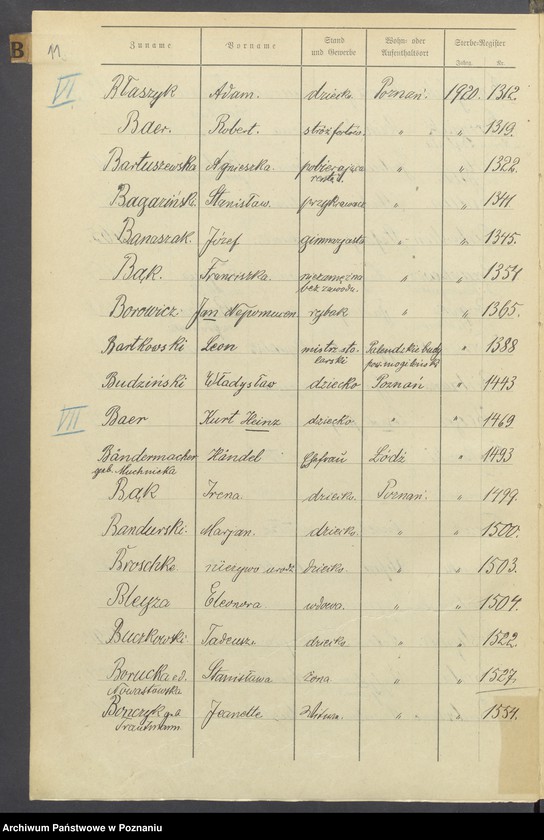 B
11.
Zuname Vorname Stand und Gewerbe Wohn- oder Aufenthaltsort Sterbe-Register
Jahrg. Nr.
VI
Błaszyk Adam. dziecko Poznań. 1920. 1312.
Baer. Robert. „ „ 1319.
Bartuszewska Agnieszka. pobierająca „ „ 1322.
Bagaziński Stanisław. przykrawacz „ „ 1341
Banaszak. Józef gimnazjasta „ „ 1345.
Bąk. Franciszka. niezamężna bez zawodu. „ „ 1354
Borowicz. Jan Nepomucen. rybak „ „ 1365.
Bartkowski Leon mistrz stolarski „ 1388
Budziński Władysław dziecko Poznań „ 1443
VII
Baer Kurt Heinz dziecko „ „ 1469
Bändermacher Händel Ehefrau Łódź „ 1493
geb. Muchnicka
Bąk Irena dziecko. Poznań. „ 1499.
Bandurski. Maryan. dziecko. „ „ 1500.
Broschke nieżywo urodz. dziecko. „ „ 1503.
Bleyza Eleonora wdowa. „ „ 1504.
Buczkowski Tadeusz. dziecko „ „ 1522.
Borucka Stanisława żona „ „ 1527.
Nowastowska
Bonczyk geb Jeanette Witwe. „ „ 1554.
Trautmann
Archiwum Państwowe w Poznaniu